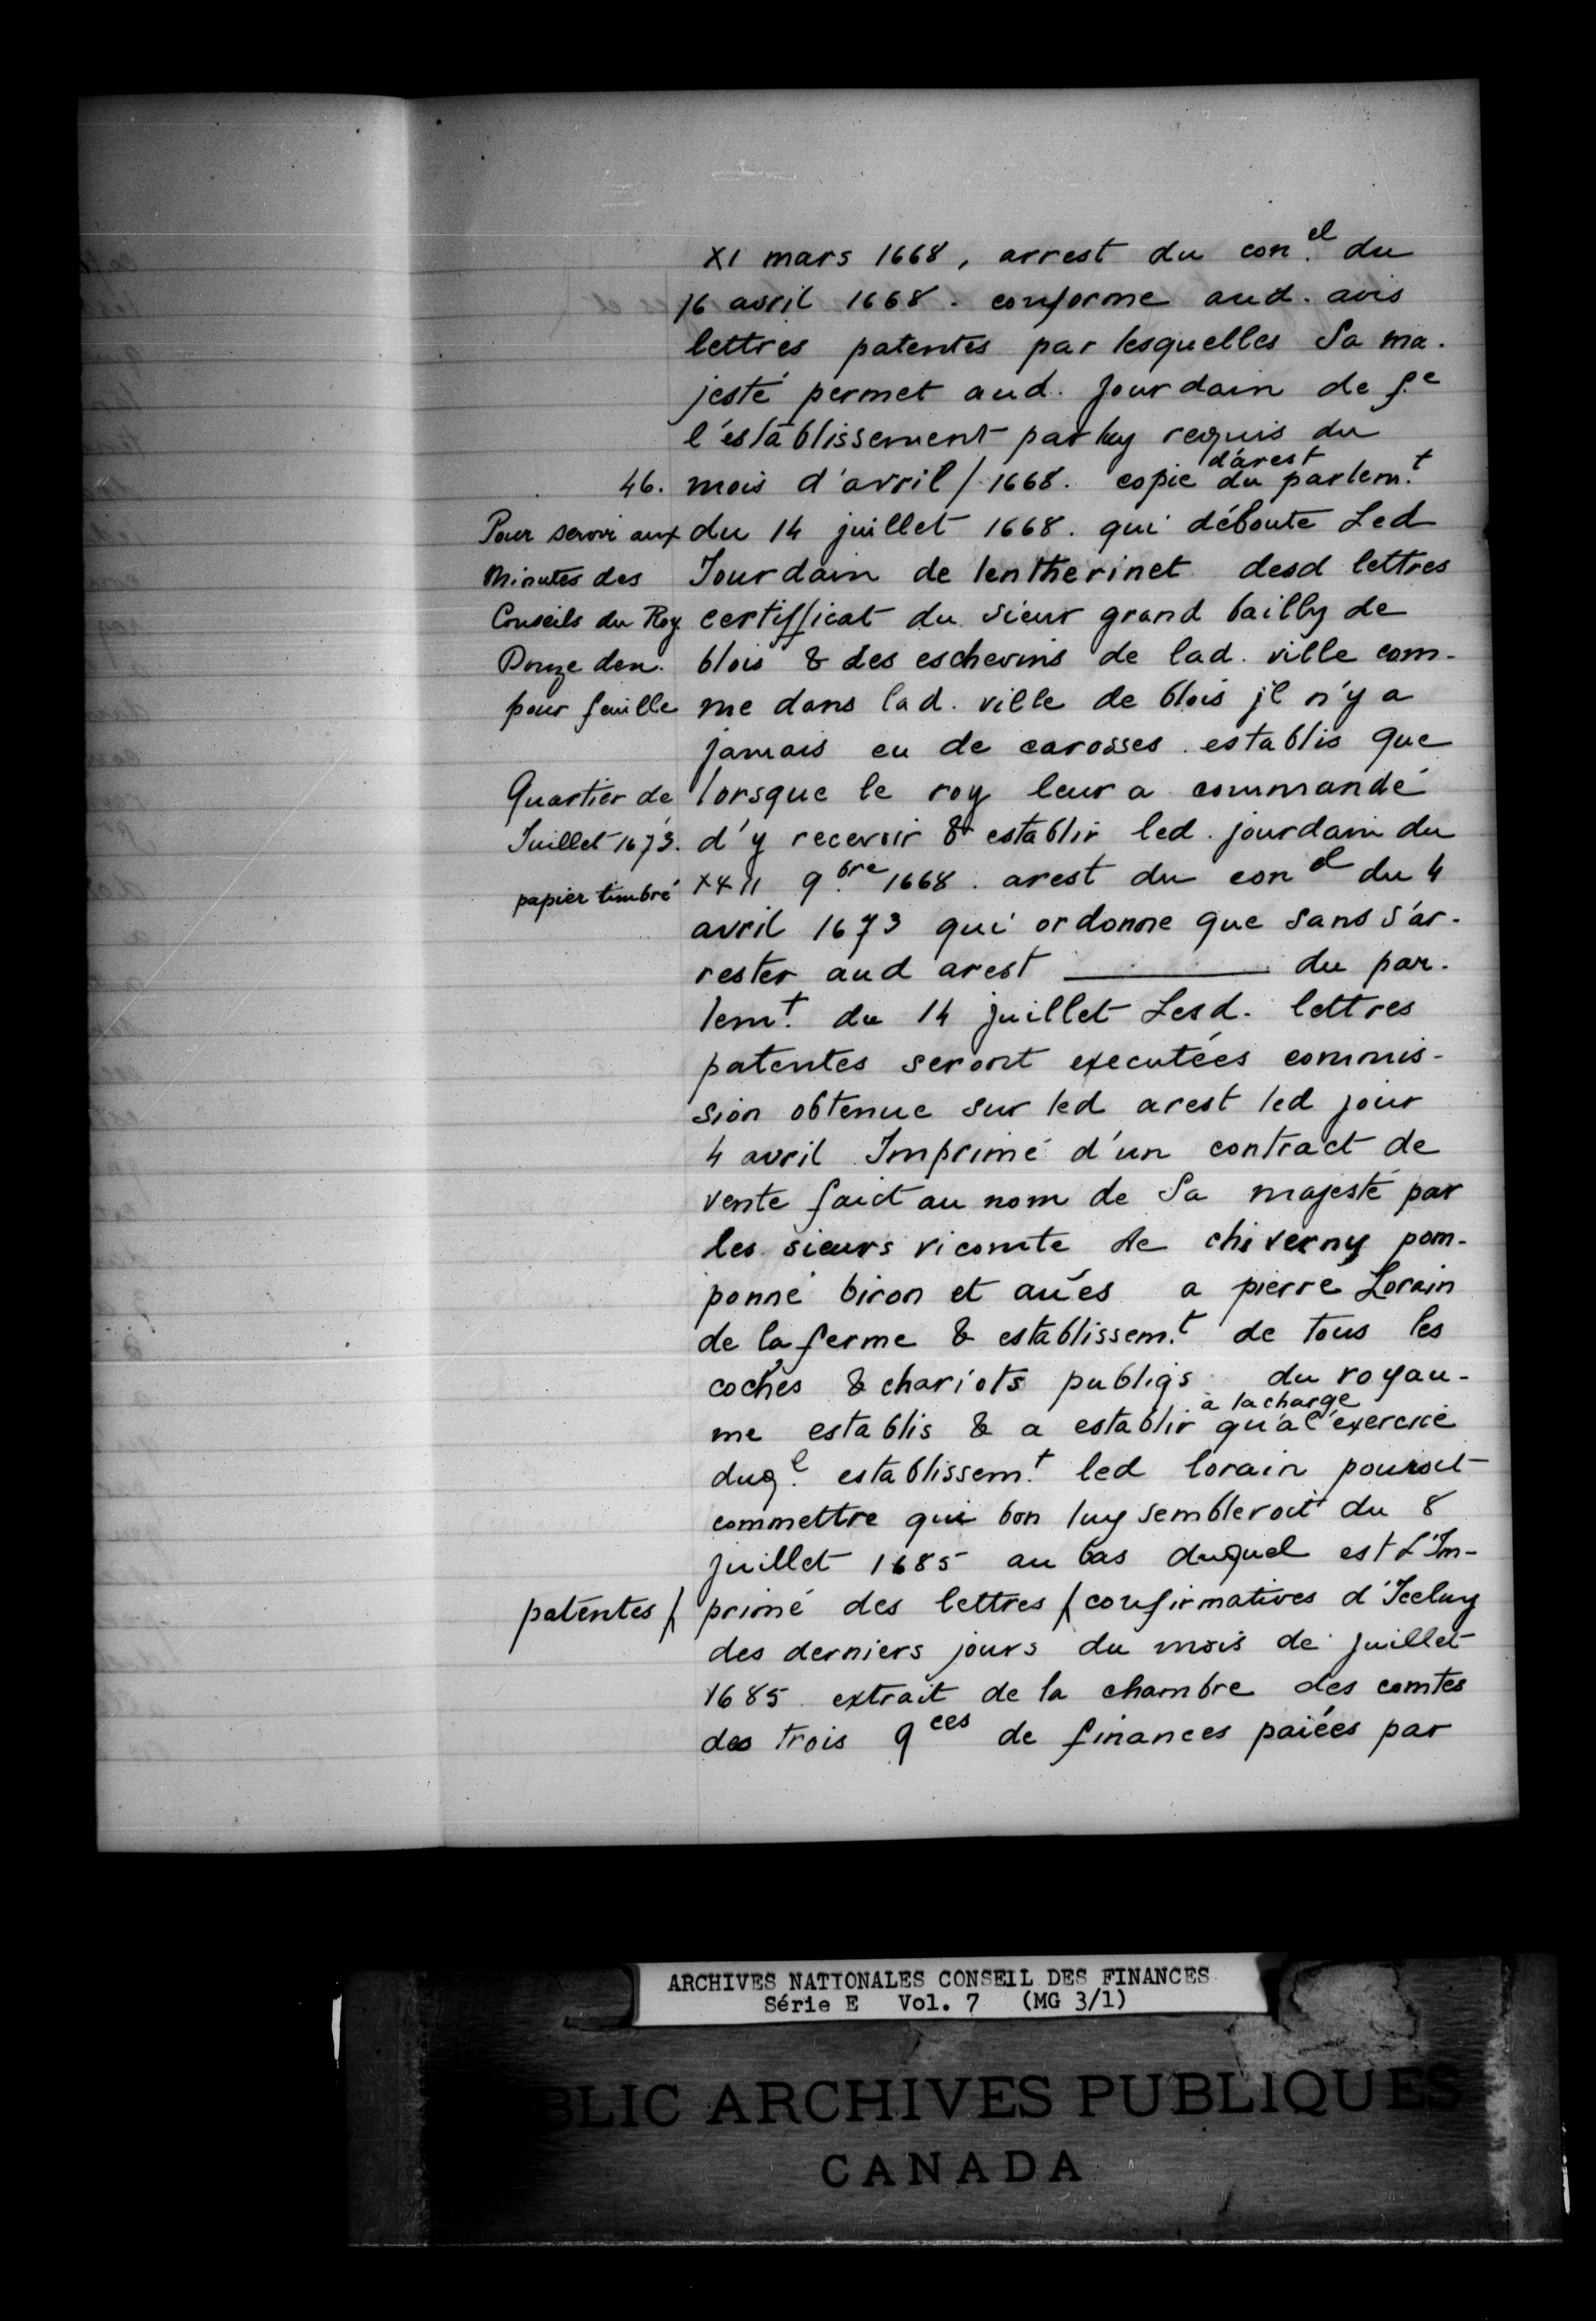 XI mars 1668, arrest du con.el du
16 avril 1668. conforme aud. avis
lettres patentes par lesquelles Sa ma-
jesté permet aud. Jourdain de f.e
l'establissement par luy requis du
46. mois d'avril / 1668. copie d'arest du parlem.t
Pour servir aux du 14 juillet 1668. qui déboute Led
Minutes des Jourdain de lentherinet desd lettres
Conseils du Roy certifficat du sieur grand bailly de
Douze den. blois & des eschevins de lad. ville com-
pour feuille me dans lad. ville de blois jl n'y a
jamais eu de carosses establis que
Quartier de lorsque le roy leur a commandé
Juillet 1673. d'y recevoir & establir led. jourdain du
papier timbré XXII 9.bre 1668. arest du con el du 4
avril 1673 qui ordonne que sans s'ar-
rester aud arest ______ du par-
lem.t du 14 juillet Lesd. lettres
patentes seront executées commis-
sion obtenue sur led arest led jour
4 avril Imprimé d'un contract de
vente faict au nom de Sa majesté par
les sieurs vicomte de chiverny pom-
ponne biron et aués a pierre Lorain
de la ferme & establissem.t de tous les
coches & chariots publiqs du royau-
me establis & a establir à la charge qu'a l'exercice
duq.l establissem.t led lorain pouroit
commettre qui bon luy sembleroit du 8
juillet 1685 au bas duquel est L'Im-
patentes / primé des lettres / confirmatives d'Iceluy
des derniers jours du mois de juillet
1685 extrait de la chambre des comtes
des trois qces de finances paiées par
ARCHIVES NATIONALES CONSEIL DES FINANCES
Série E Vol. 7 (MG 3/1)
BLIC ARCHIVES PUBLIQUES
CANADA